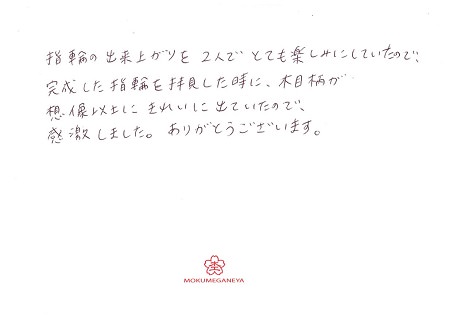 指輪の出来上がりを2人でとても楽しみにしていたので、
完成した指輪を拝見した時に、木目柄が
想像以上にきれいに出ていたので、
感激しました。ありがとうございます。
MOKUMEGANEYA